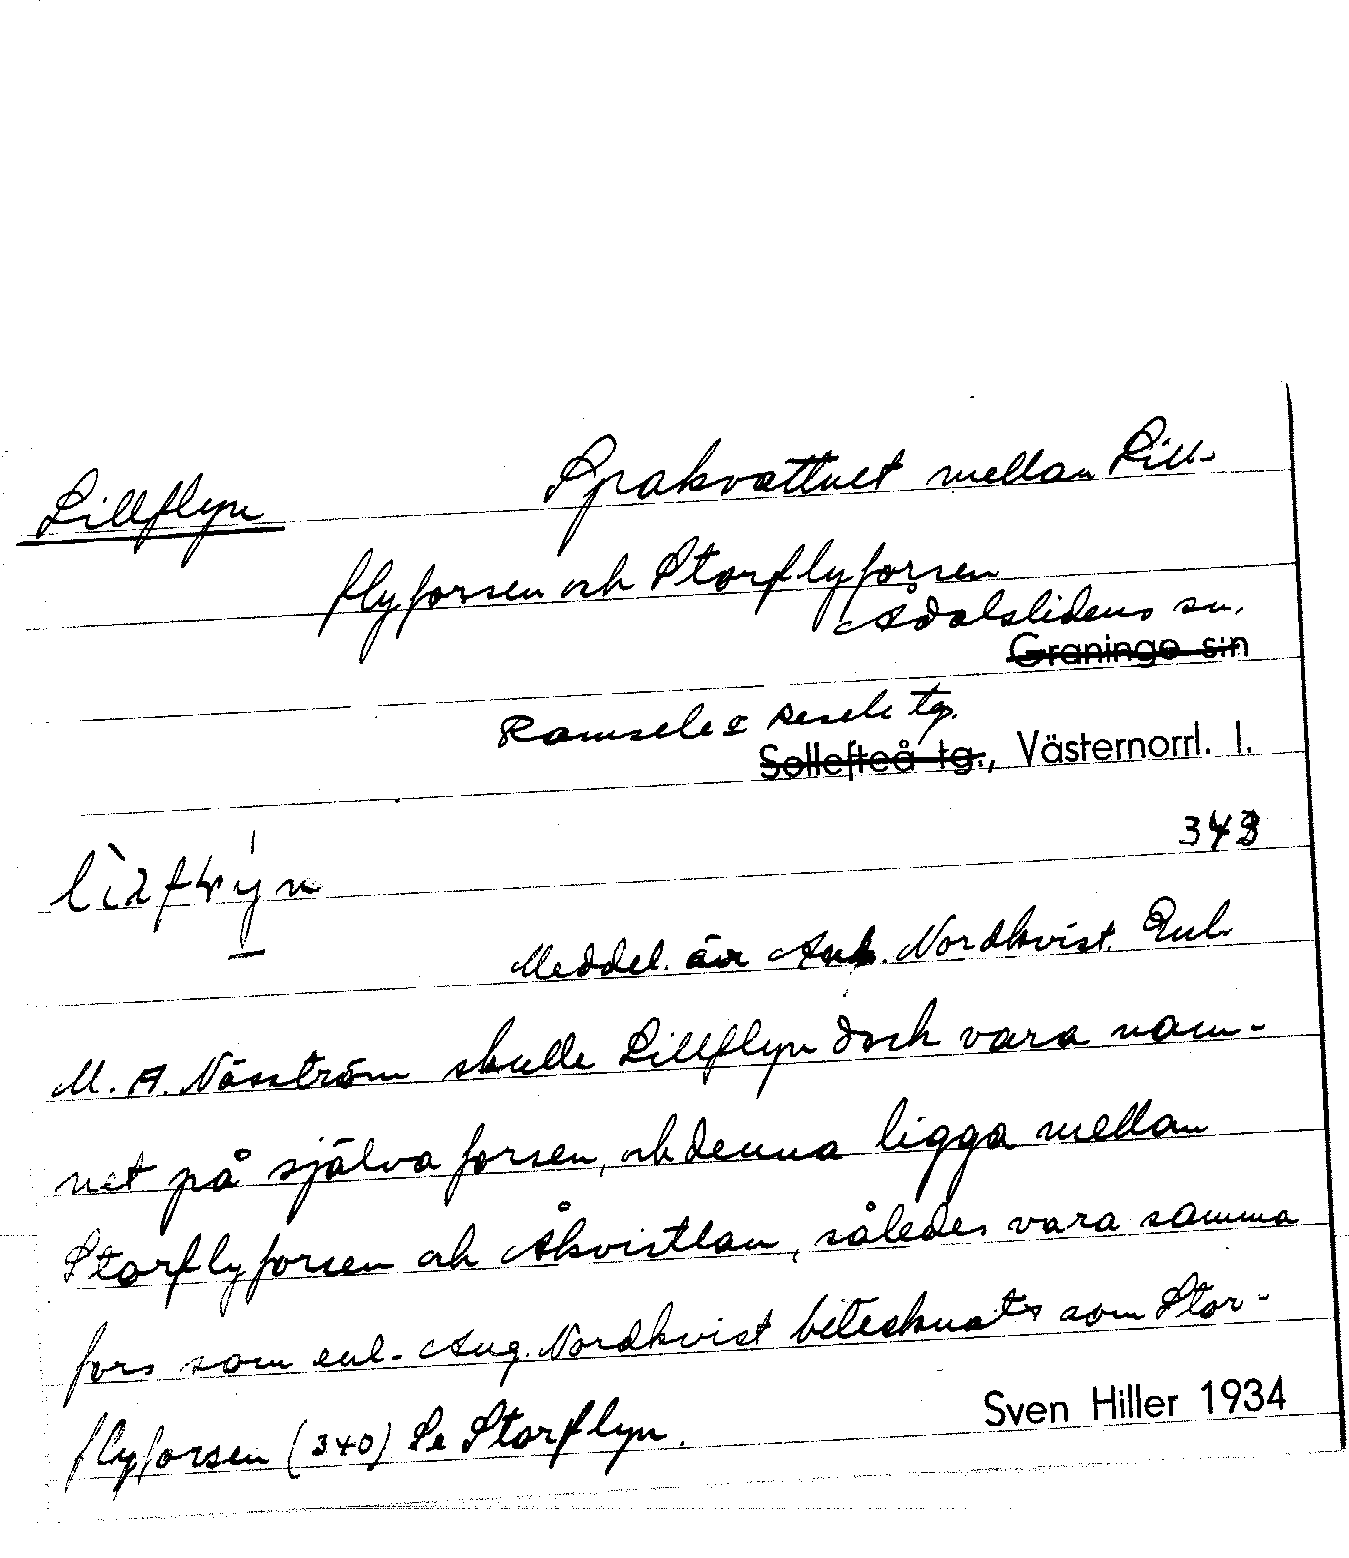 Lillflyn Spakvattnet mellan Lill-
flyforsen och Storflyforsen
Ådalslidens sn.
Graninge sn
Ramsele o Resele tg.
Sollefteå tg., Västernorrl. l.
343
Meddel. av Nordkvist. Enl.
M. A. Näsström skulle Lillflyn dock vara nam-
net på själva forsen, och denna ligga mellan
Storflyforsen och Åkvistlan, således vara samma
fors som enl. Aug. Nordkvist betecknats som Stor-
flyforsen (340) Se Storflyn.
Sven Hiller 1934